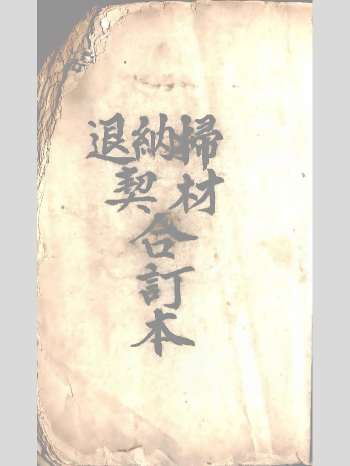 掃材
納退契
合訂本